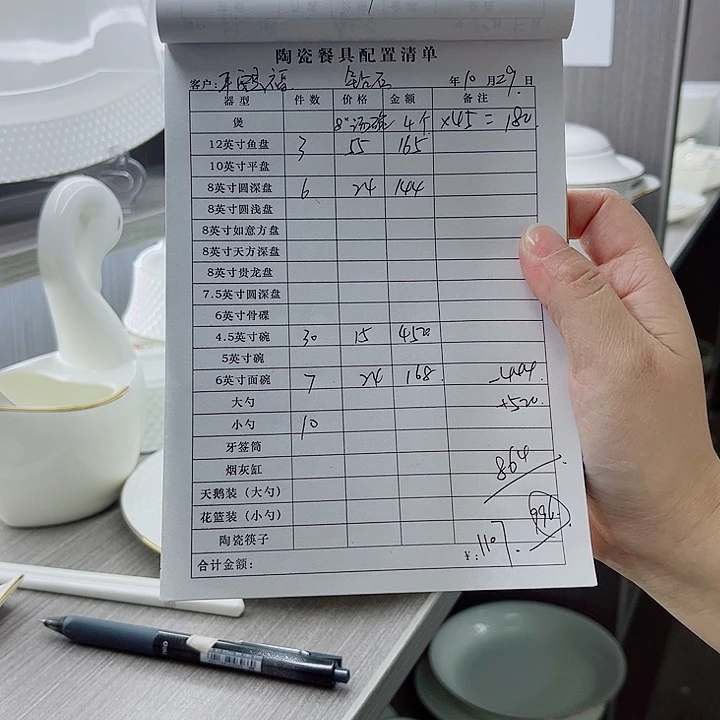 陶瓷餐具配置清单
客户: 福 钻石 年10月29日
器型 件数 价格 金额 备注
煲 8"汤碗 4个 ×45=180
12英寸鱼盘 3 55 165
10英寸平盘
8英寸圆深盘 6 24 144
8英寸圆浅盘
8英寸如意方盘
8英寸天方深盘
8英寸贵龙盘
7.5英寸圆深盘
6英寸骨碟
4.5英寸碗 30 15 450
5英寸碗
6英寸面碗 7 24 168 -144
大勺 +520
小勺 10
牙签筒
烟灰缸 864
天鹅装(大勺)
花篮装(小勺) 996
陶瓷筷子
合计金额: ¥:1107